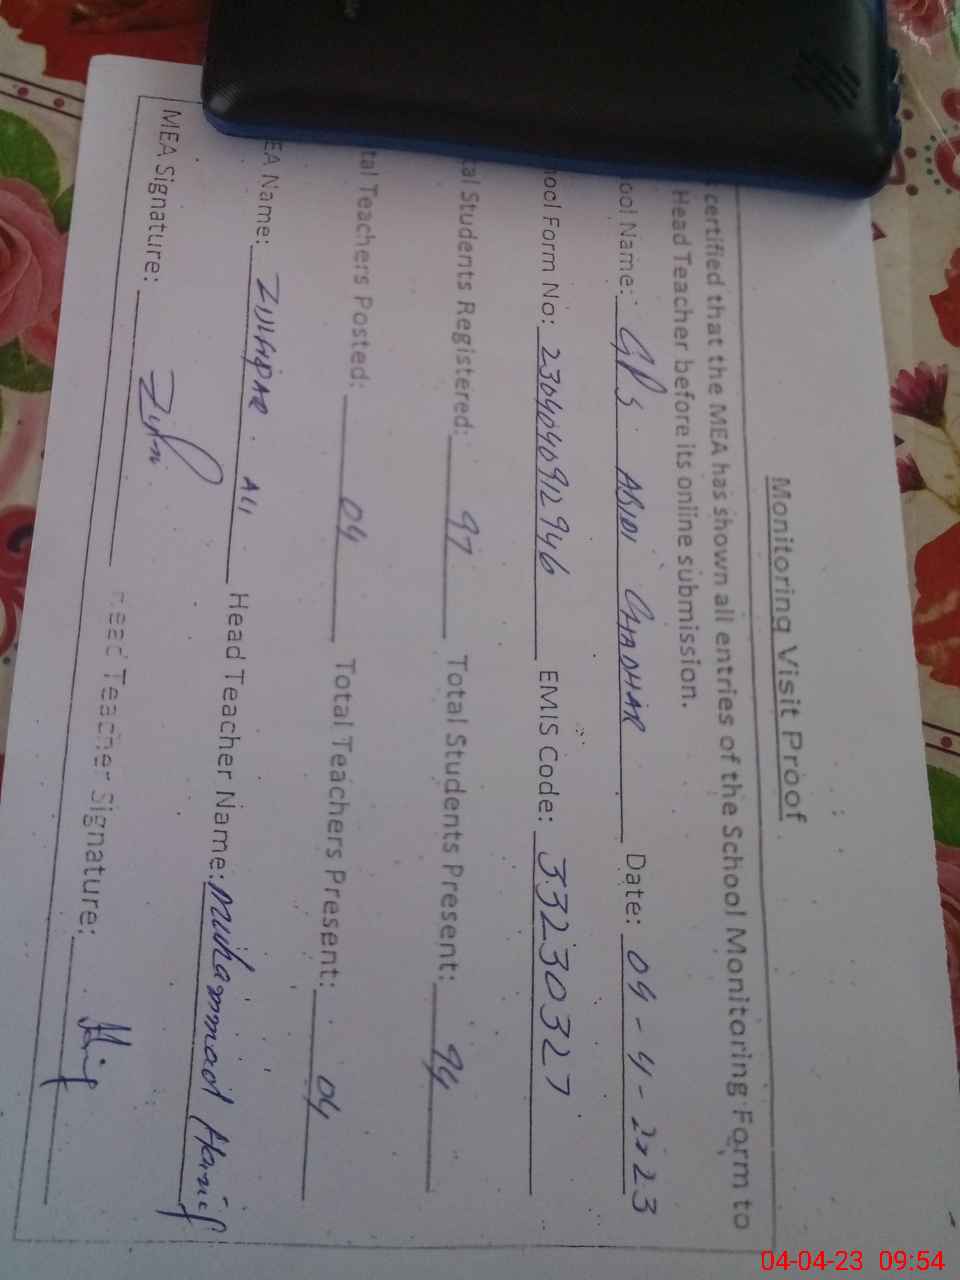 Monitoring Visit Proof
certified that the MEA has shown all entries of the School Monitoring Form to
Head Teacher before its online submission.
ool Name: GPS ABIDI CHADHAR Date: 04-4-2023
hool Form No: 2304040912946 EMIS Code: 33230327
tal Students Registered: 97 Total Students Present: 94
tal Teachers Posted: 04 Total Teachers Present: 04
EA Name: ZULFIQAR ALI Head Teacher Name: Muhammad Hanif
MEA Signature: Head Teacher Signature:
04-04-23 09:54